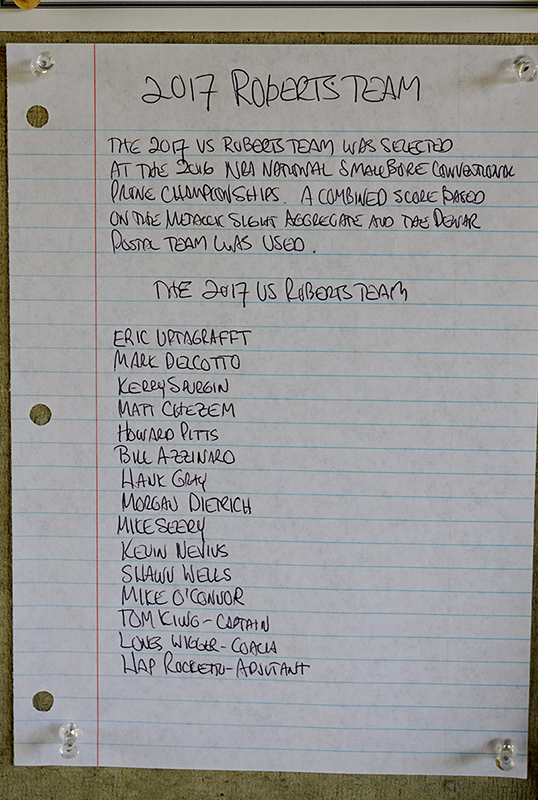 2017 ROBERTS TEAM
THE 2017 US ROBERTS TEAM WAS SELECTED
AT THE 2016 NRA NATIONAL SMALLBORE CONVENTIONAL
PRONE CHAMPIONSHIPS. A COMBINED SCORE BASED
ON THE METALLIC SIGHT AGGREGATE AND THE DEWAR
POSTAL TEAM WAS USED.
THE 2017 US ROBERTS TEAM
ERIC UPTAGRAFFT
MARK DELCOTTO
KERRY SPURGIN
MATT CHEZEM
HOWARD PITTS
BILL AZZINARO
HANK GRAY
MORGAN DIETRICH
MIKE SEERY
KEVIN NEVIUS
SHAWN WELLS
MIKE O'CONNOR
TOM KING-CAPTAIN
LONES WIGGER-COACH
HAP ROCKETTO-ADJUTANT